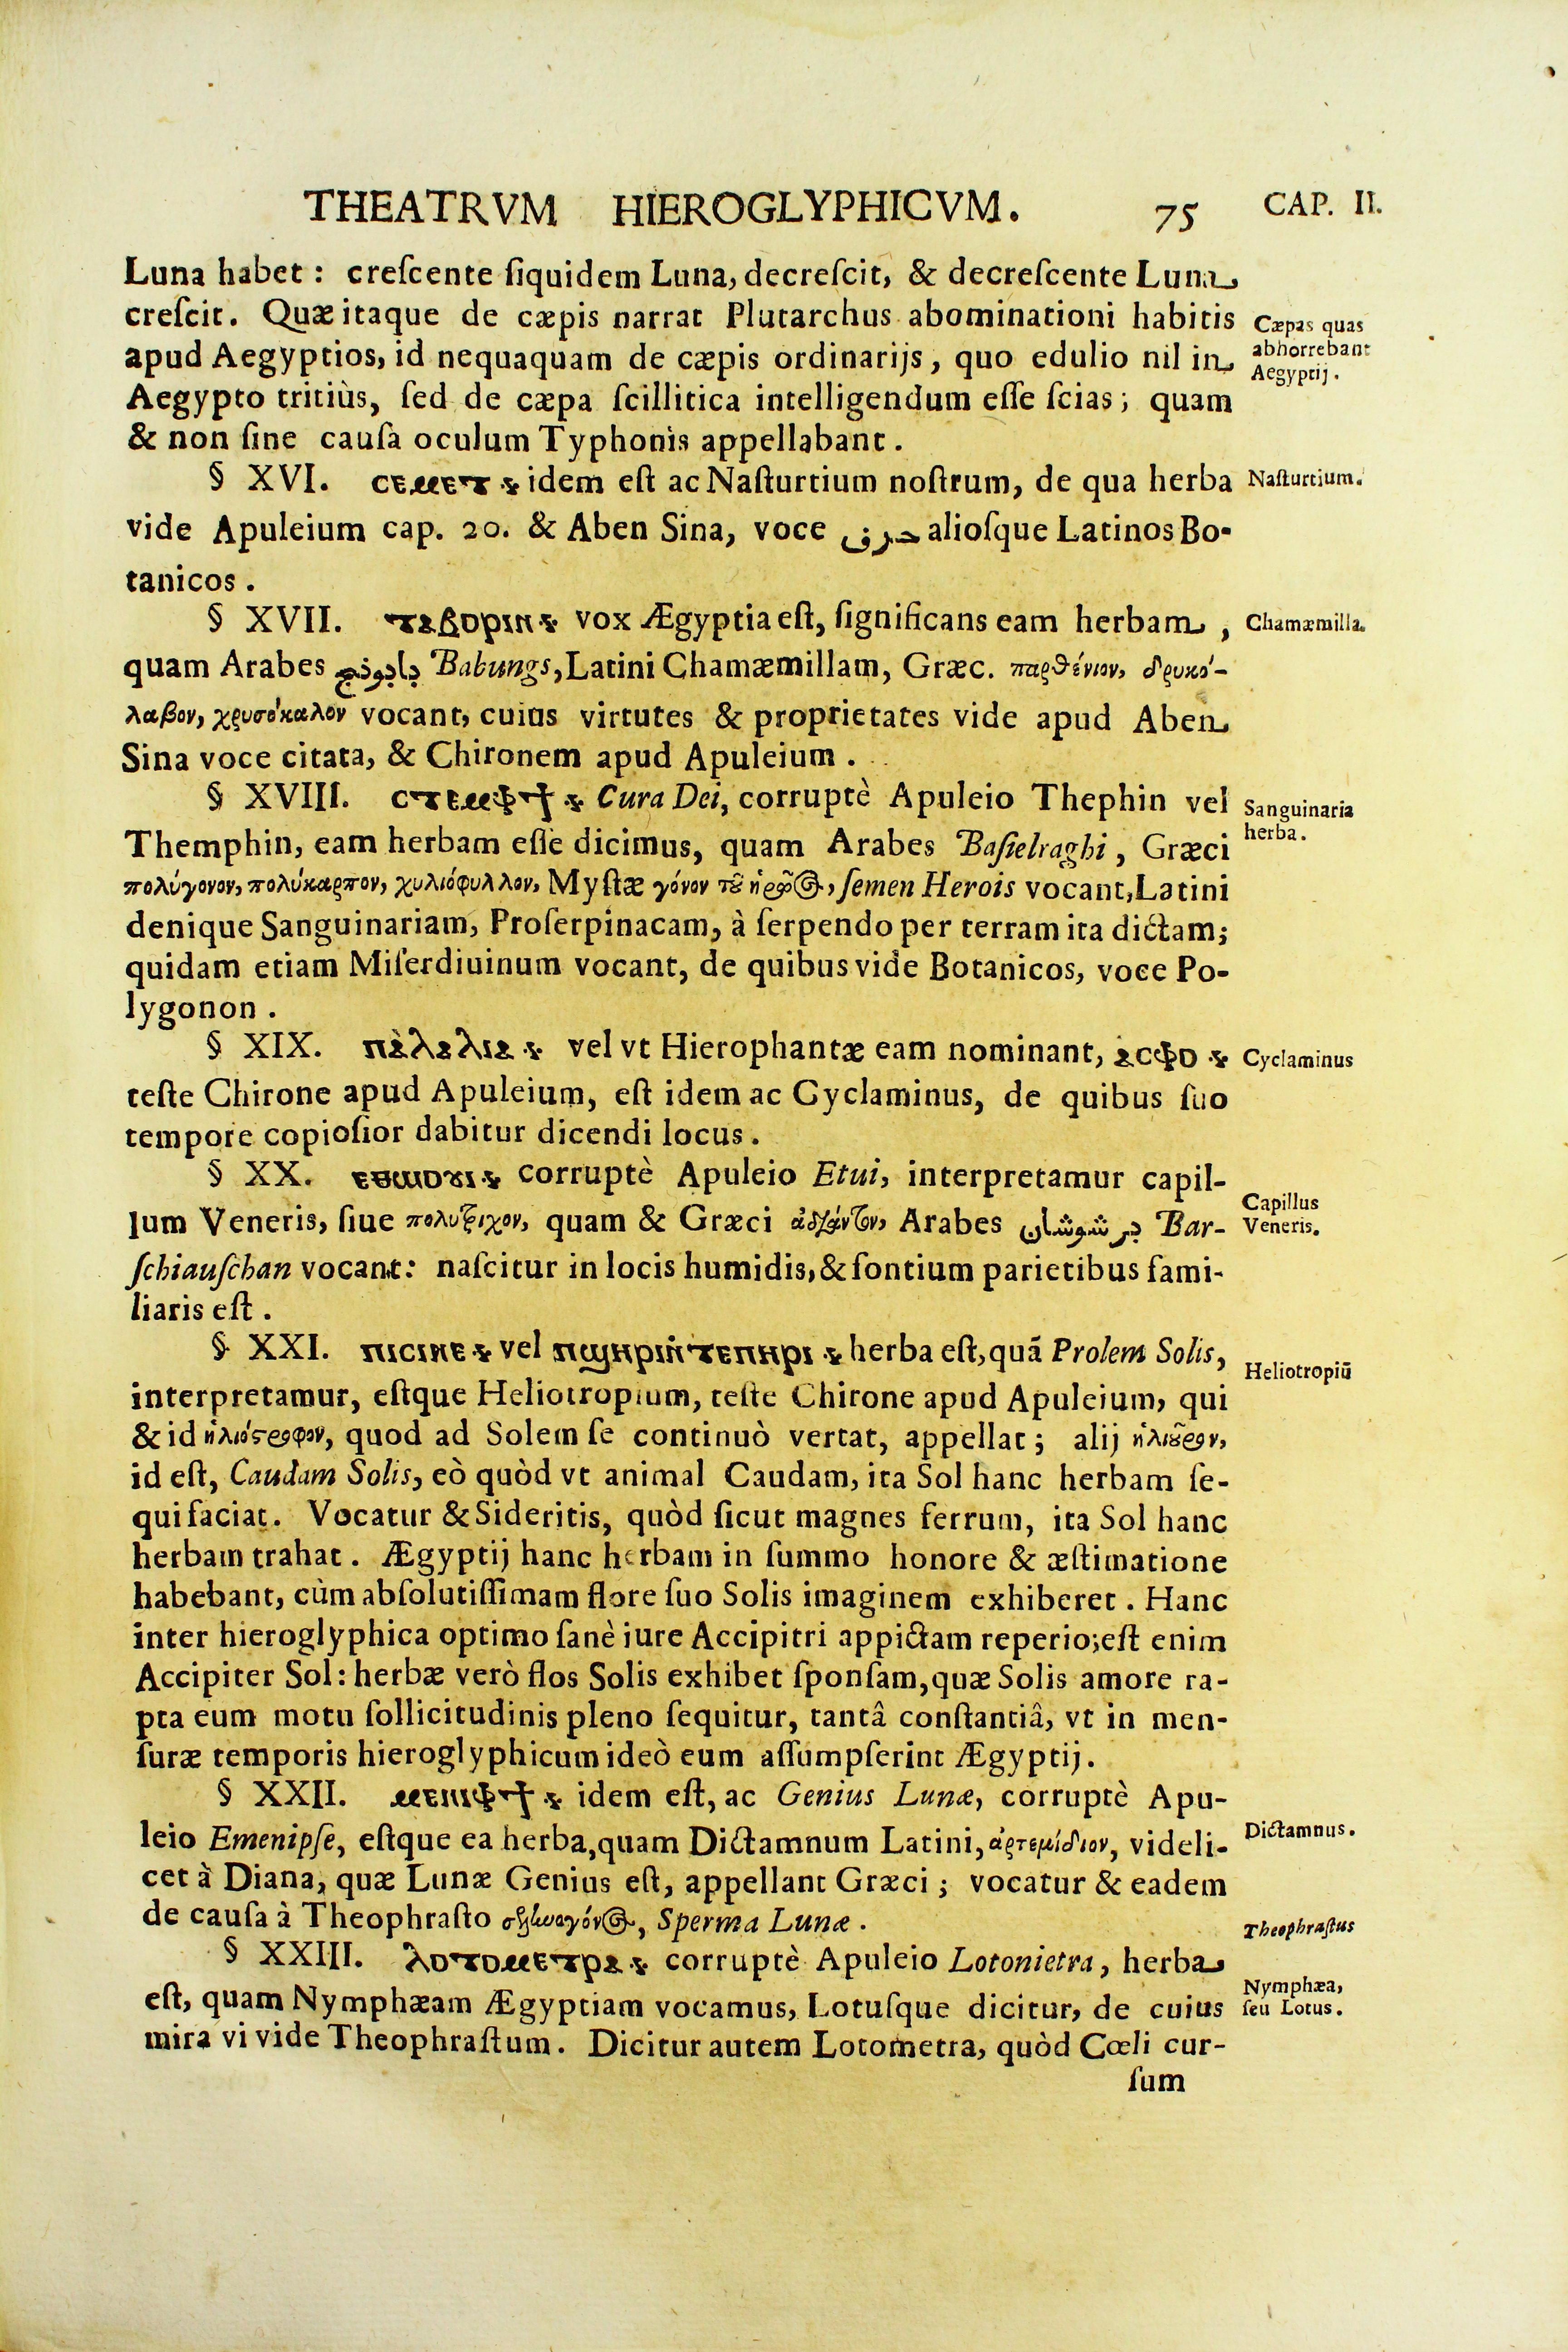 THEATRVM HIEROGLYPHICVM. 75 CAP. II.
Luna habet : creſcente ſiquidem Luna, decreſcit, & decreſcente Luna
creſcit. Quæ itaque de cæpis narrat Plutarchus abominationi habitis
Cæpas quas
abhorrebant
Aegyptij.
apud Aegyptios, id nequaquam de cæpis ordinarijs, quo edulio nil in
Aegypto tritiùs, ſed de cæpa ſcillitica intelligendum eſſe ſcias; quam
& non ſine cauſa oculum Typhonis appellabant.
§ XVI. ⲥⲉⲙⲉⲧ idem eſt ac Naſturtium noſtrum, de qua herba
Naſturtium.
vide Apuleium cap. 20. & Aben Sina, voce حرق alioſque Latinos Bo-
tanicos.
§ XVII. ⲧⲁⲃⲟⲣⲓⲛ vox Ægyptia eſt, ſignificans eam herbam,
Chamæmilla.
quam Arabes بابونج Babungs, Latini Chamæmillam, Græc. παρθένιον, δρυκό-
λαβον, χρυσόκαλον vocant, cuius virtutes & proprietates vide apud Aben
Sina voce citata, & Chironem apud Apuleium.
§ XVIII. ⲥⲧⲉⲙⲫϯ Cura Dei, corruptè Apuleio Thephin vel
Sanguinaria
herba.
Themphin, eam herbam eſſe dicimus, quam Arabes Baſielraghi, Græci
πολύγονον, πολύκαρπον, χυλιόφυλλον, Myſtæ γόνον τȣ͂ ἡρῷος, ſemen Herois vocant, Latini
denique Sanguinariam, Proſerpinacam, à ſerpendo per terram ita dictam;
quidam etiam Miſerdiuinum vocant, de quibus vide Botanicos, voce Po-
lygonon.
§ XIX. ⲡⲁ̀ⲗⲁⲗⲓⲁ vel vt Hierophantæ eam nominant, ⲁⲥⲫⲟ
Cyclaminus
teſte Chirone apud Apuleium, eſt idem ac Cyclaminus, de quibus ſuo
tempore copioſior dabitur dicendi locus.
§ XX. ⲉⲑⲱⲟⲩⲓ corruptè Apuleio Etui, interpretamur capil-
Capillus
Veneris.
lum Veneris, ſiue πολύτριχον, quam & Græci ἀδίαντον, Arabes برشوشان Bar-
ſchiauſchan vocant: naſcitur in locis humidis, & fontium parietibus fami-
liaris eſt.
§ XXI. ⲡⲓⲥⲓⲛⲉ vel ⲡϣⲏⲣⲓⲛ̀ⲧⲉⲡⲏⲣⲓ herba eſt, quã Prolem Solis,
Heliotropiũ
interpretamur, eſtque Heliotropium, teſte Chirone apud Apuleium, qui
& id ἡλιόςροφον, quod ad Solem ſe continuò vertat, appellat; alij ἡλιȣ͂ρον,
id eſt, Caudam Solis, eò quòd vt animal Caudam, ita Sol hanc herbam ſe-
qui faciat. Vocatur & Sideritis, quòd ſicut magnes ferrum, ita Sol hanc
herbam trahat. Ægyptij hanc herbam in ſummo honore & æſtimatione
habebant, cùm abſolutiſſimam flore ſuo Solis imaginem exhiberet. Hanc
inter hieroglyphica optimo ſanè iure Accipitri appictam reperio; eſt enim
Accipiter Sol: herbæ verò flos Solis exhibet ſponſam, quæ Solis amore ra-
pta eum motu ſollicitudinis pleno ſequitur, tantâ conſtantiâ, vt in men-
ſuræ temporis hieroglyphicum ideò eum aſſumpſerint Ægyptij.
§ XXII. ⲙⲉⲛⲓⲫϯ idem eſt, ac Genius Lunæ, corruptè Apu-
Dictamnus.
leio Emenipſe, eſtque ea herba, quam Dictamnum Latini, ἀρτεμίδιον, videli-
cet à Diana, quæ Lunæ Genius eſt, appellant Græci; vocatur & eadem
de cauſa à Theophraſto σεληναγόνος, Sperma Lunæ.
Theophraſtus
§ XXIII. ⲗⲟⲧⲟⲙⲉⲧⲣⲁ corruptè Apuleio Lotonietra, herba
Nymphæa,
ſeu Lotus.
eſt, quam Nymphæam Ægyptiam vocamus, Lotuſque dicitur, de cuius
mira vi vide Theophraſtum. Dicitur autem Lotometra, quòd Cœli cur-
ſum